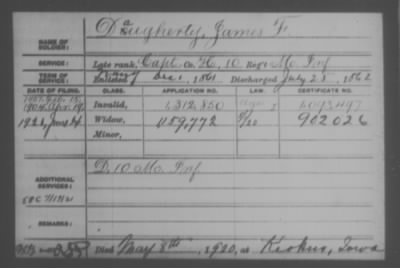 NAME OF SOLDIER: Daugherty, James F.
SERVICE: Late rank, Capt. Co. H, 10 Reg't Mo. Inf
TERM OF SERVICE: Enlisted Dec 1, 1861 Discharged July 25, 1862
DATE OF FILING. CLASS. APPLICATION NO. LAW. CERTIFICATE NO.
Invalid, 1,312,850
1904 Apr. 19
1920, June 4 Widow, 1159,772 902026
Minor,
ADDITIONAL SERVICES: D. 10 Mo. Inf
REMARKS:
Died May 8th, 1920, at Keokuk, Iowa